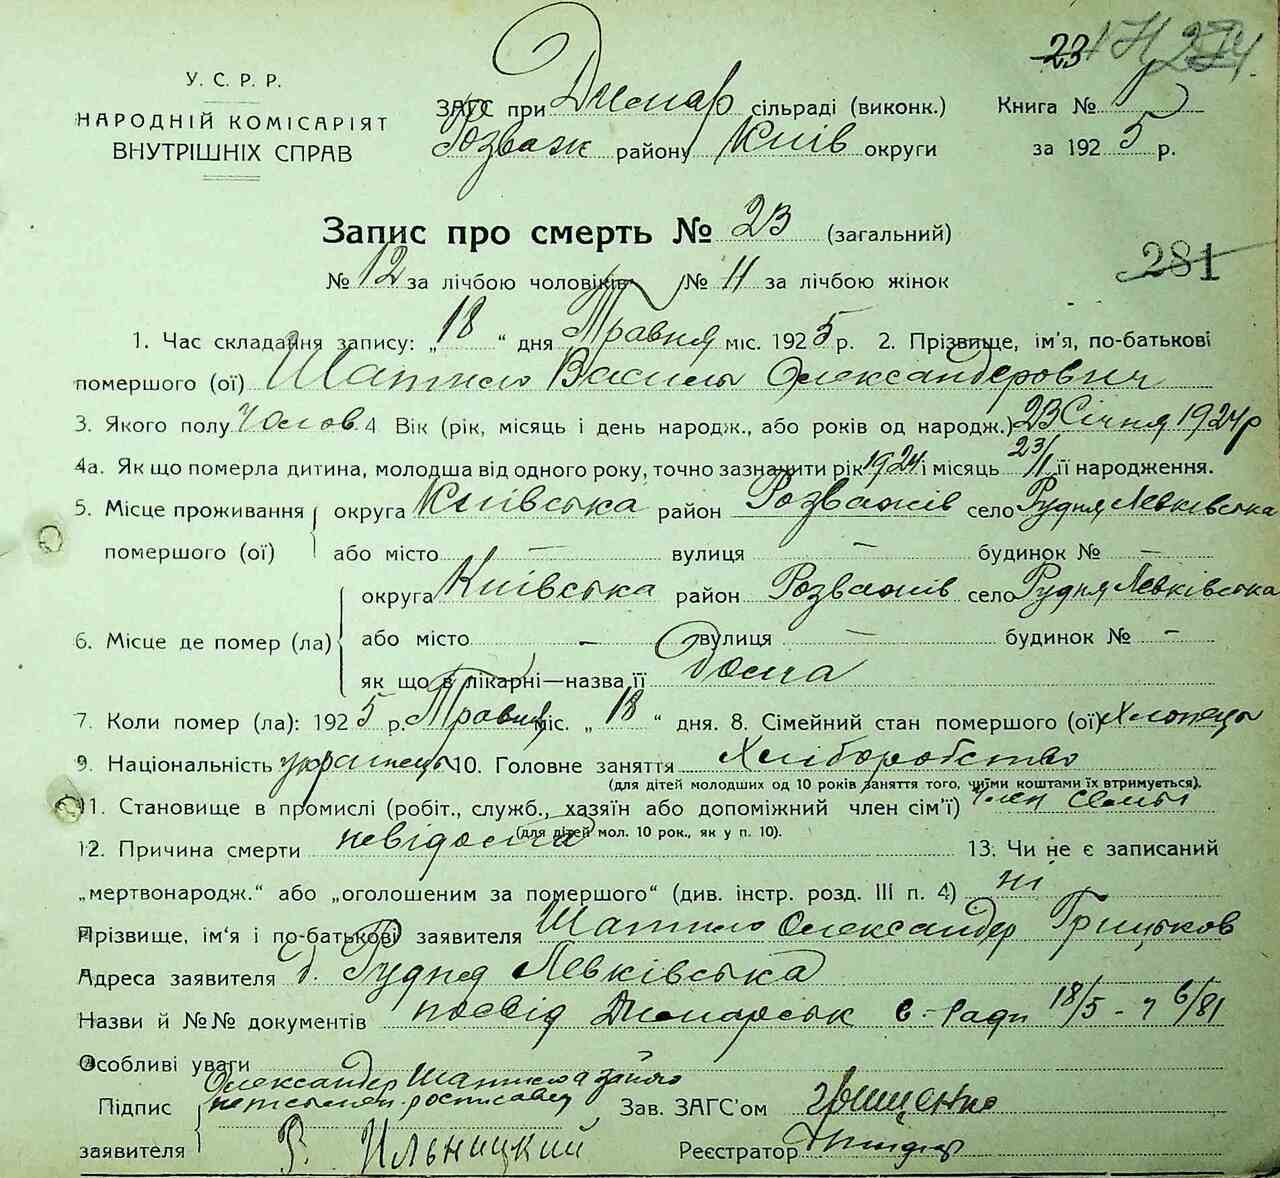 281
У. С. Р. Р.
НАРОДНІЙ КОМІСАРІЯТ
ВНУТРІШНІХ СПРАВ
ЗАГС при Димар сільраді (виконк.) Книга №
Розваж району Київ округи за 1925 р.
Запис про смерть № 23 (загальний)
№ 12 за лічбою чоловіків № 11 за лічбою жінок
1. Час складання запису: „18“ дня Травня міс. 1925 р. 2. Прізвище, ім'я, по-батькові
помершого (ої) Шатило Василь Олександерович
3. Якого полу чолов 4. Вік (рік, місяць і день народж., або років од народж.) 23 Січня 1924 р
4а. Як що померла дитина, молодша від одного року, точно зазначити рік 1924 і місяць 23/I її народження.
5. Місце проживання помершого (ої) округа Київська район Розважів село Рудня Левківська
або місто — вулиця — будинок № —
6. Місце де помер (ла) округа Київська район Розважів село Рудня Левківська
або місто — вулиця — будинок № —
як що в лікарні—назва її Дома
7. Коли помер (ла): 1925 р. Травня міс. „18“ дня. 8. Сімейний стан помершого (ої) Хлопець
9. Національність українець 10. Головне заняття Хліборобство
(для дітей молодших од 10 років заняття того, чиїми коштами їх втримується).
11. Становище в промислі (робіт., служб., хазяїн або допоміжний член сім'ї) член семьї
(для дітей мол. 10 рок., як у п. 10).
12. Причина смерти невідома 13. Чи не є записаний
„мертвонародж.“ або „оголошеним за помершого“ (див. інстр. розд. III п. 4) ні
Прізвище, ім'я і по-батькові заявителя Шатило Олександер Грицьков
Адреса заявителя с. Рудня Левківська
Назви й №№ документів посвід Димарськ с-Ради 18/5 - 26/81
Особливі уваги
Підпис заявителя Олександер Шатило а за його
неписьмен. росписався
Ильницкий
Зав. ЗАГС'ом Грищенко
Реєстратор